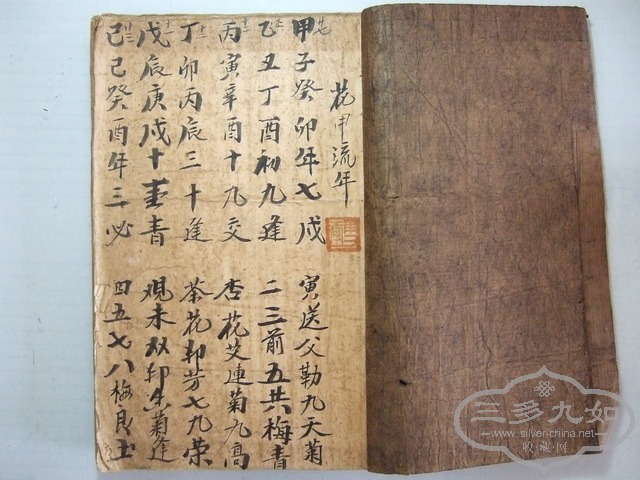 花甲流年
甲子癸卯年七戌 寅送父勒九天菊
乙丑丁酉初九逢 二三前五共梅青
丙寅辛酉十九交 杏花艾連菊九高
丁卯丙辰三十逢 茶花卯芳七九荣
戊辰庚戌十 青 观未双卯 菊逢
己巳癸酉年三必 四五七八梅良土
三多九如
www.silver-china.net
收·藏·网